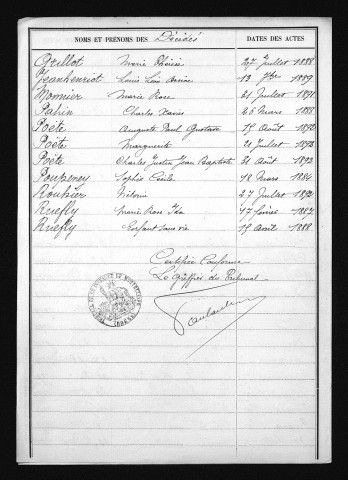 NOMS ET PRÉNOMS DES Décédés DATES DES ACTES
Grillot Marie Thérèse 27 Juillet 1888
Jeanhenriot Louis 13 1889
Monnier Marie Rose 21 Juillet 1891
Pahin Charles Xavier 26 Mars 1888
Poëte Auguste Paul Gustave 15 Août
Poëte Marguerite 21 Juillet
Poëte Charles Justin Jean Baptiste 21 Août 1892
Poupeney Sophie Cécile 18 Mars 1884
Rouhier Victorin 27 Juillet
Ruefly Marie Rose 17 février 1887
Ruefly Enfant sans vie 19 Avril 1888
Certifiée Conforme
Le Greffier du Tribunal